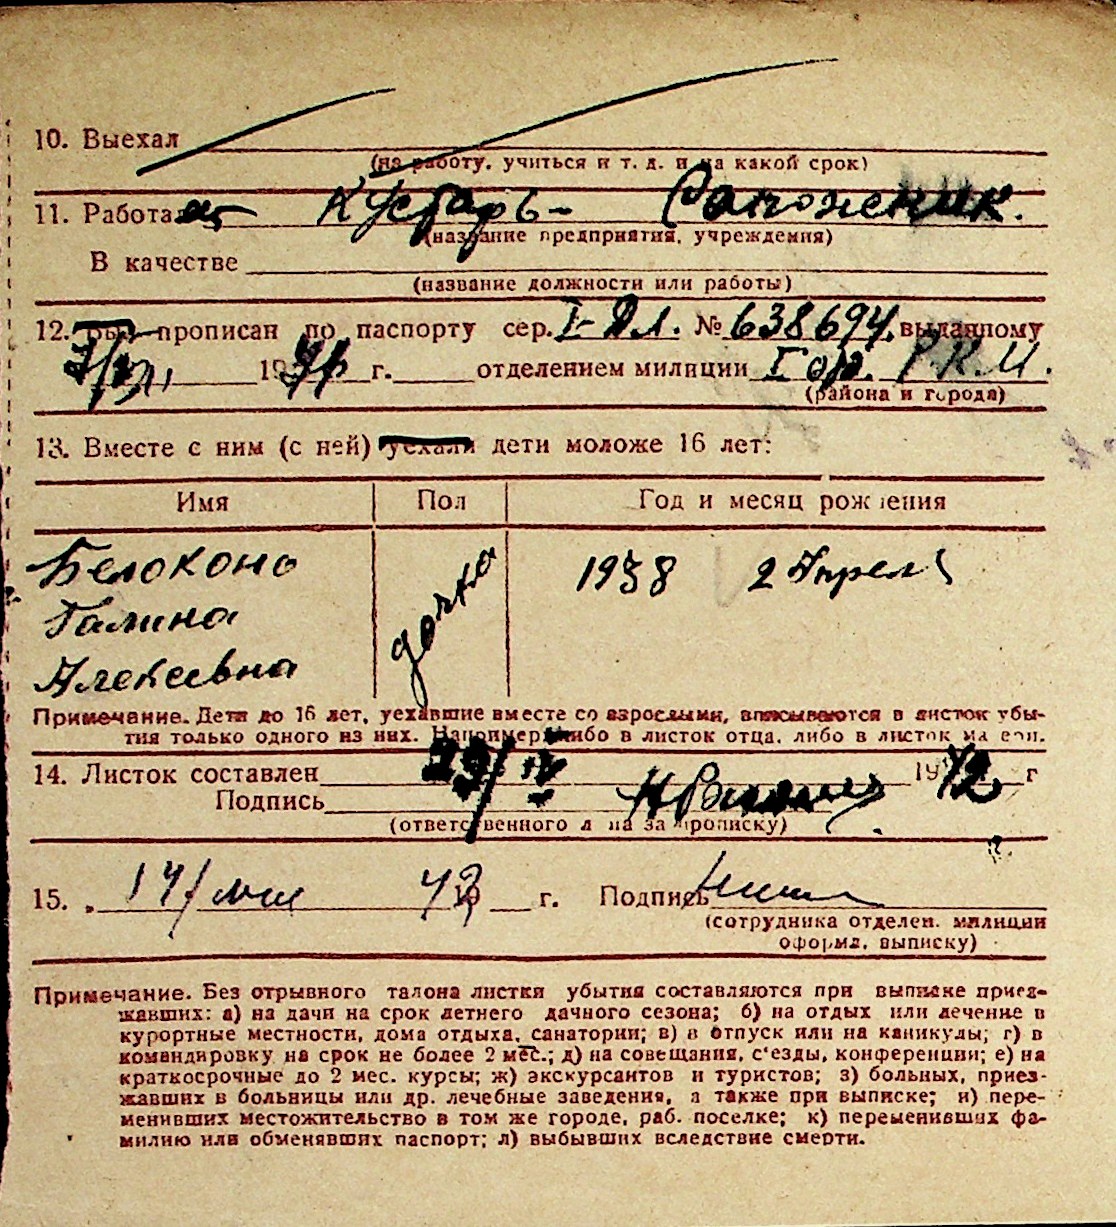 10. Выехал
(на работу, учиться и т. д. и на какой срок)
11. Работает Кустарь - Сапожник.
(название предприятия, учреждения)
В качестве
(название должности или работы)
12. Был прописан по паспорту сер. I-Дл. № 638694. выданному
19 г. отделением милиции I Гор. Р.К.М.
(района и города)
13. Вместе с ним (с ней) уехали дети моложе 16 лет:
Имя Пол Год и месяц рождения
Белоконо дочка 1938 2 Апреля
Галина
Алексеевна
Примечание. Дети до 16 лет, уехавшие вместе со взрослыми, вписываются в листок убы-
тия только одного из них. Например, либо в листок отца, либо в листок матери.
14. Листок составлен 29/IV 1942 г
Подпись
(ответственного лица за прописку)
15. 14/ мая 42 19 г. Подпись
(сотрудника отделен. милиции
оформл. выписку)
Примечание. Без отрывного талона листки убытия составляются при выписке приез-
жавших: а) на дачи на срок летнего дачного сезона; б) на отдых или лечение в
курортные местности, дома отдыха, санатории; в) в отпуск или на каникулы; г) в
командировку на срок не более 2 мес.; д) на совещания, с'езды, конференции; е) на
краткосрочные до 2 мес. курсы; ж) экскурсантов и туристов; з) больных, приез-
жавших в больницы или др. лечебные заведения, а также при выписке; и) пере-
менивших местожительство в том же городе, раб. поселке; к) переменивших фа-
милию или обменявших паспорт; л) выбывших вследствие смерти.